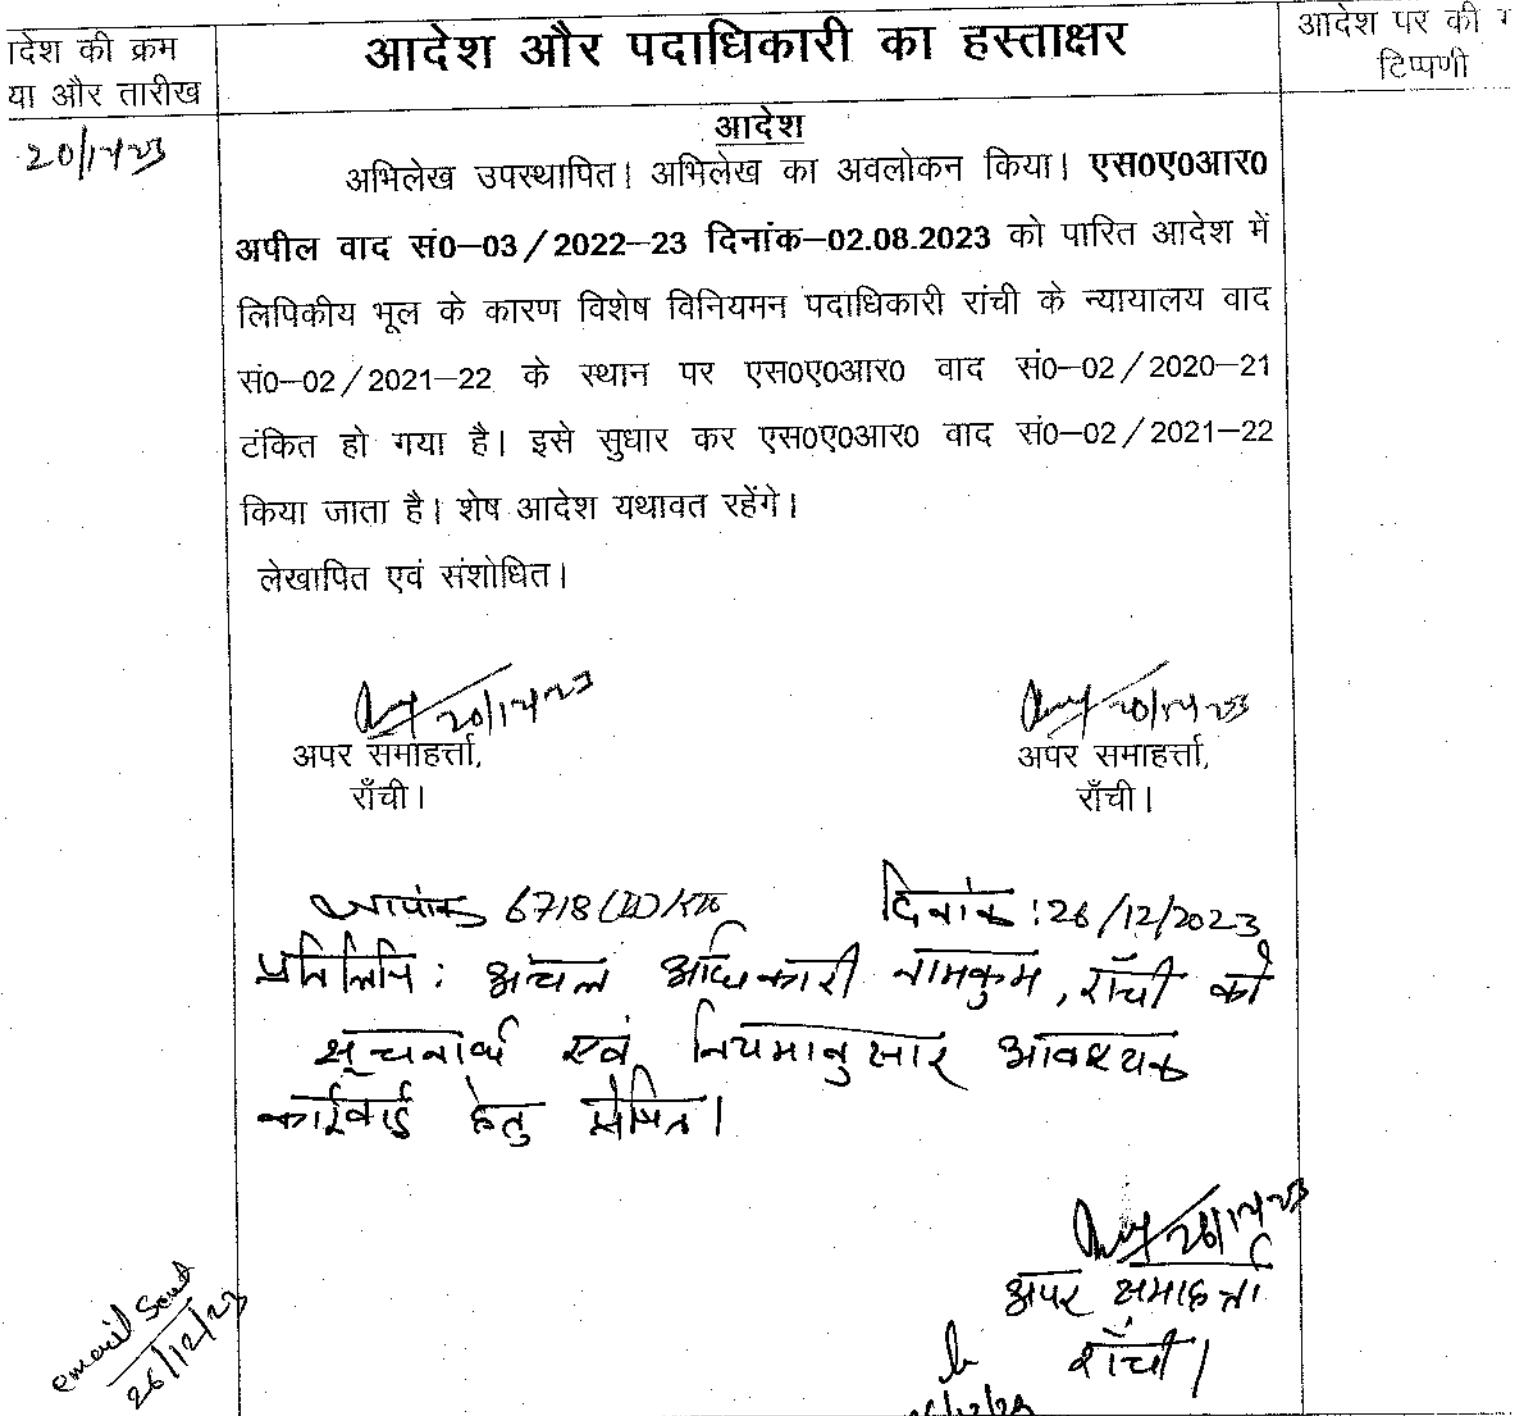 ादेश की क्रम
या और तारीख
आदेश और पदाधिकारी का हस्ताक्षर
आदेश पर की ग
टिप्पणी
20/12/23
आदेश
अभिलेख उपस्थापित। अभिलेख का अवलोकन किया। एस0ए0आर0
अपील वाद सं0–03/2022–23 दिनांक–02.08.2023 को पारित आदेश में
लिपिकीय भूल के कारण विशेष विनियमन पदाधिकारी रांची के न्यायालय वाद
सं0–02/2021–22 के स्थान पर एस0ए0आर0 वाद सं0–02/2020–21
टंकित हो गया है। इसे सुधार कर एस0ए0आर0 वाद सं0–02/2021–22
किया जाता है। शेष आदेश यथावत रहेंगे।
लेखापित एवं संशोधित।
20/12/23
अपर समाहर्त्ता,
राँची।
20/12/23
अपर समाहर्त्ता,
राँची।
ज्ञापांक 6718
दिनांक : 26/12/2023
प्रतिलिपि : अंचल अधिकारी नामकुम, राँची को
सूचनार्थ एवं नियमानुसार आवश्यक
कार्रवाई हेतु प्रेषित।
26/12/23
अपर समाहर्त्ता
राँची।
email sent
26/12/23